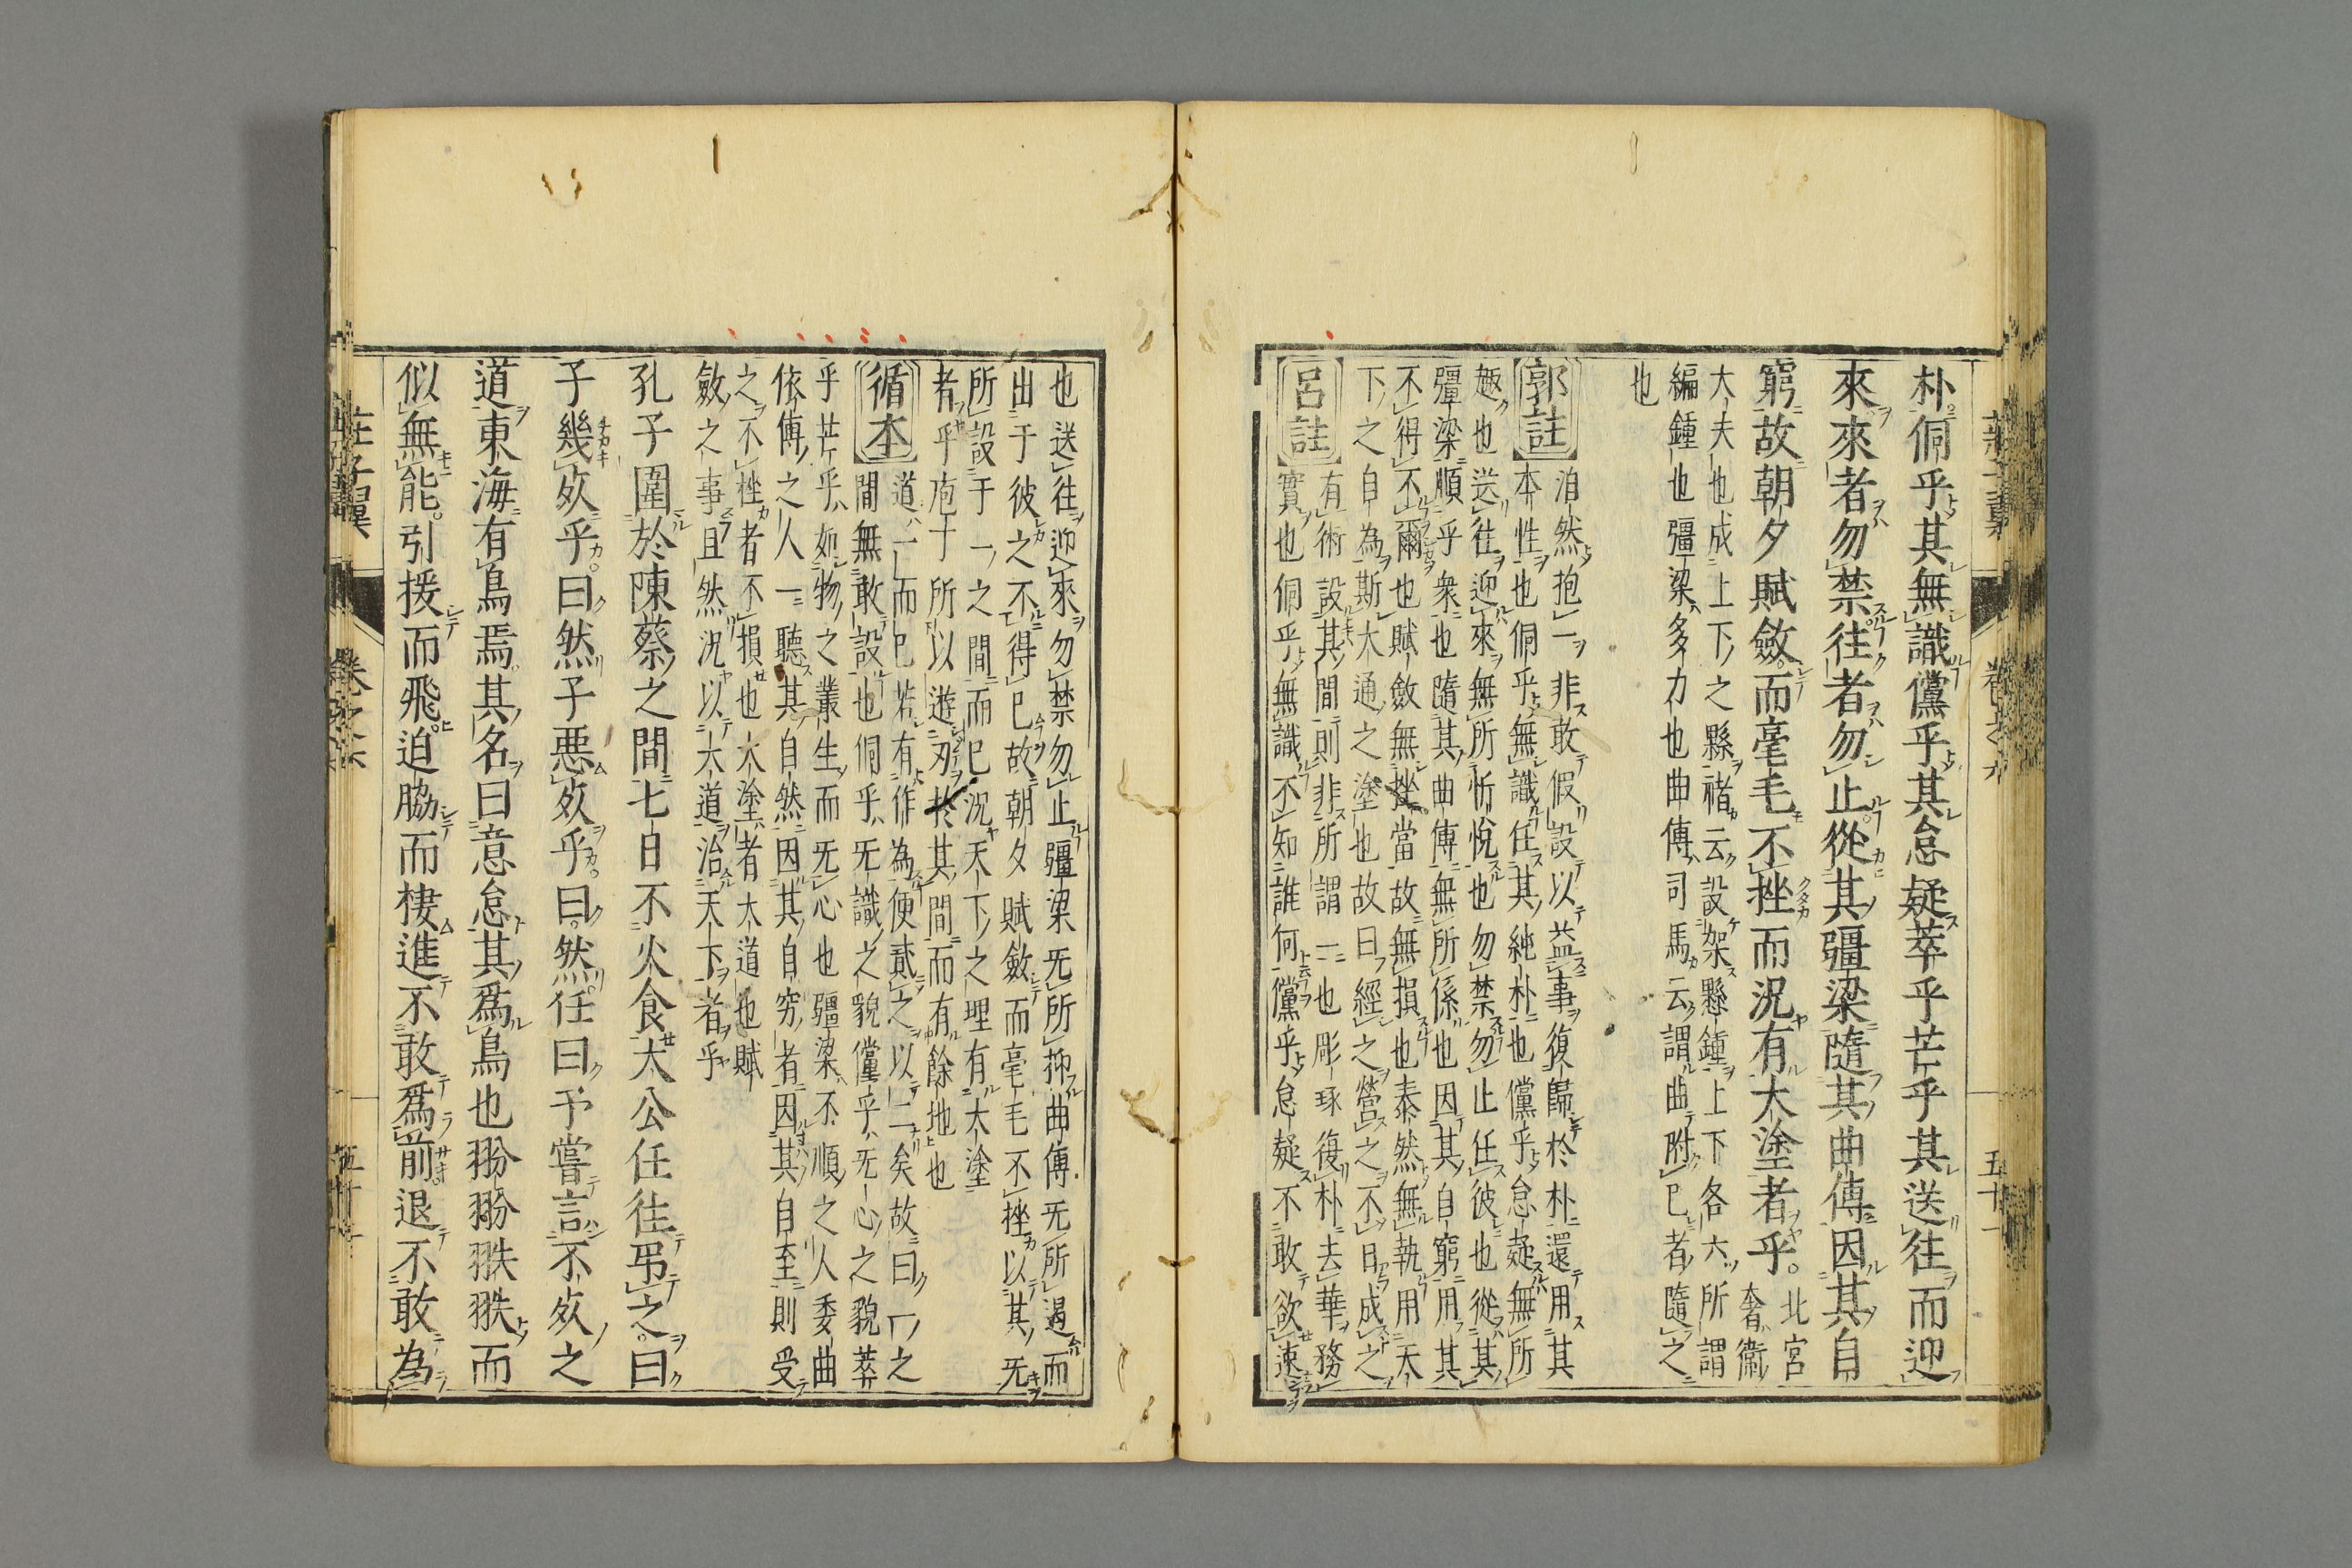 朴侗乎其無識儻乎其怠疑萃乎芒乎其送往而迎
來來者勿禁往者勿止從其彊梁隨其曲傅因其自
窮故朝夕賦斂而毫毛不挫而況有大塗者乎北宮
奢衞
大夫也成上下之縣禇云設架懸鍾上下各六所謂
編鍾也彊梁多力也曲傅司馬云謂曲附已者隨之
也
郭註
泊然抱一非敢假設以益事復歸於朴還用其
本性也侗乎無識任其純朴也儻乎怠疑無所
趣也送往迎來無所忻悅也勿禁勿止任彼也從其
彊梁順乎衆也隨其曲傅無所係也因其自窮用其
不得不爾也賦斂無挫當故無損也泰然無執用天
下之自為斯大通之塗也故曰經之營之不日成之
呂註
有術設其間則非所謂一也彫琢復朴去華務
實也侗乎無識不知誰何儻乎怠疑不敢欲速
也送往迎來勿禁勿止彊梁旡所抑曲傅旡所遏而
出于彼之不得已故朝夕賦斂而毫毛不挫以其旡
所設于一之間而已況天下之理有大塗
者乎庖丁所以遊刃於其間而有餘地也
循本
道一而已若有作為便貳之以二矣故曰一之
間無敢設也侗乎旡識之貌儻乎旡心之貌萃
乎芒乎如物之叢生而旡心也彊梁不順之人委曲
依傅之人一聽其自然因其自窮者因其自至則受
之不挫者不損也大塗者大道也賦
斂之事且然況以大道治天下者乎
孔子圍於陳蔡之間七日不火食大公任往弔之曰
子幾㱙乎曰然子惡㱙乎曰然任曰予嘗言不㱙之
道東海有鳥焉其名曰意怠其爲鳥也翂翂翐翐而
似無能引援而飛迫脇而棲進不敢爲前退不敢為
莊子翼
卷之六